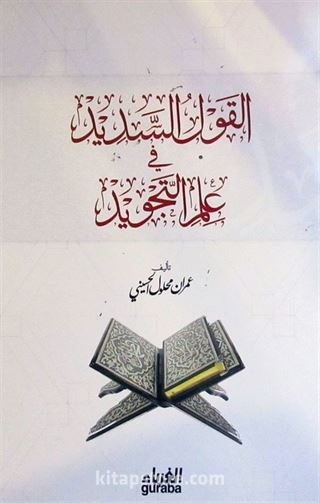 القول السديد
في
علم التجويد
تأليف
عمران محلول الحسيني
الغرباء
guraba
kitapyurdu.com